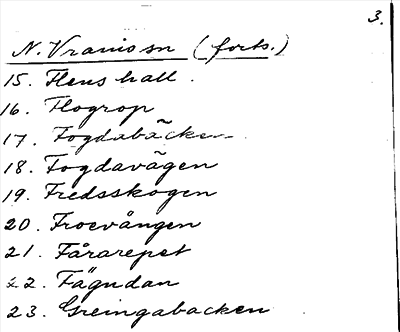 3.
N. Vramssn (forts.)
15. Flens hall.
16. Flogrop
17. Fogdabäcken
18. Fogdavägen
19. Fredsskogen
20. Froevången
21. Fårarepet
22. Fägndan
23. Greingabacken